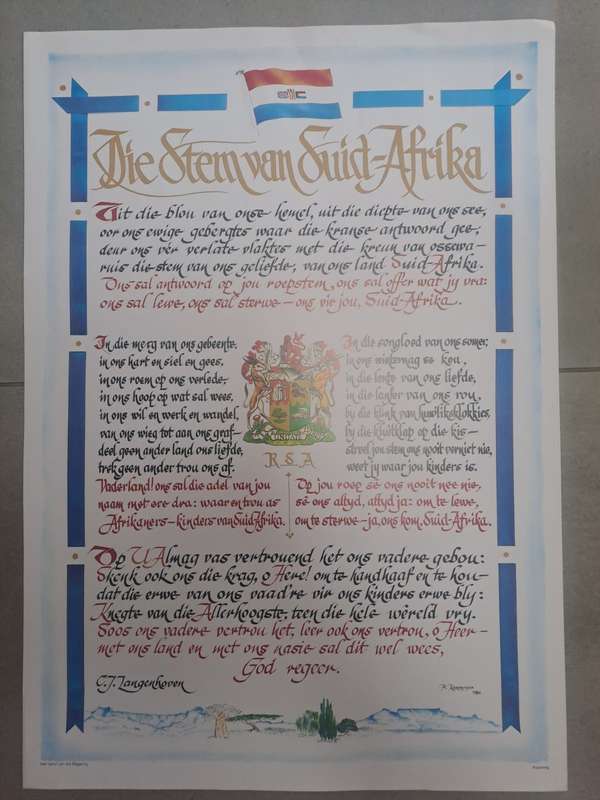 Die Stem van Suid-Afrika
Uit die blou van onse hemel, uit die diepte van ons see,
oor ons ewige gebergtes waar die kranse antwoord gee,
deur ons vêr verlate vlaktes met die kreun van ossewa—
ruis die stem van ons geliefde, van ons land Suid-Afrika.
Ons sal antwoord op jou roepstem, ons sal offer wat jy vra:
ons sal lewe, ons sal sterwe — ons vir jou, Suid-Afrika.
In die merg van ons gebeente,
in ons hart en siel en gees,
in ons roem op ons verlede,
in ons hoop op wat sal wees,
in ons wil en werk en wandel,
van ons wieg tot aan ons graf—
deel geen ander land ons liefde,
trek geen ander trou ons af.
Vaderland! ons sal die adel van jou
naam met ere dra: waar en trou as
Afrikaners—kinders van Suid-Afrika.
In die songloed van ons somer,
in ons winternag se kou,
in die lente van ons liefde,
in die lanfer van ons rou,
by die klink van huweliksklokkies,
by die kluitklap op die kis—
streel jou stem ons nooit verniet nie,
weet jy waar jou kinders is.
Op jou roep sê ons nooit nee nie,
sê ons altyd, altyd ja: om te lewe,
om te sterwe—ja, ons kom, Suid-Afrika.
R.S.A
Op U Almag vas vertrouend het ons vadere gebou:
Skenk ook ons die krag, o Here! om te handhaaf en te hou—
dat die erwe van ons vaad're vir ons kinders erwe bly:
Knegte van die Allerhoogste, teen die hele wêreld vry.
Soos ons vadere vertrou het, leer ook ons vertrou, o Heer—
met ons land en met ons nasie sal dit wel wees,
God regeer.
C.J. Langenhoven